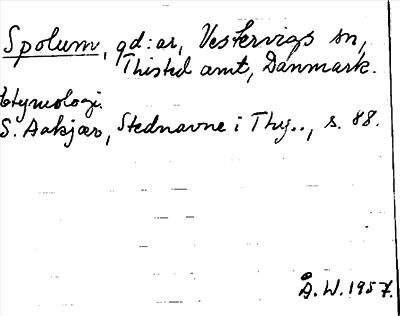 Spolum, gd:ar, Vestervigs sn,
Thisted amt, Danmark.
Etymologi.
S. Aakjær, Stednavne i Thy.., s. 88.
Å.W.1957.